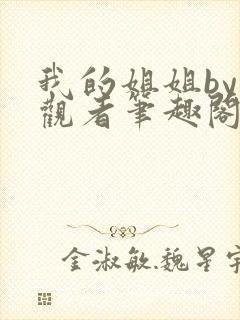 我的姐姐by
觀者筆趣閣
金淑敏.魏星宇